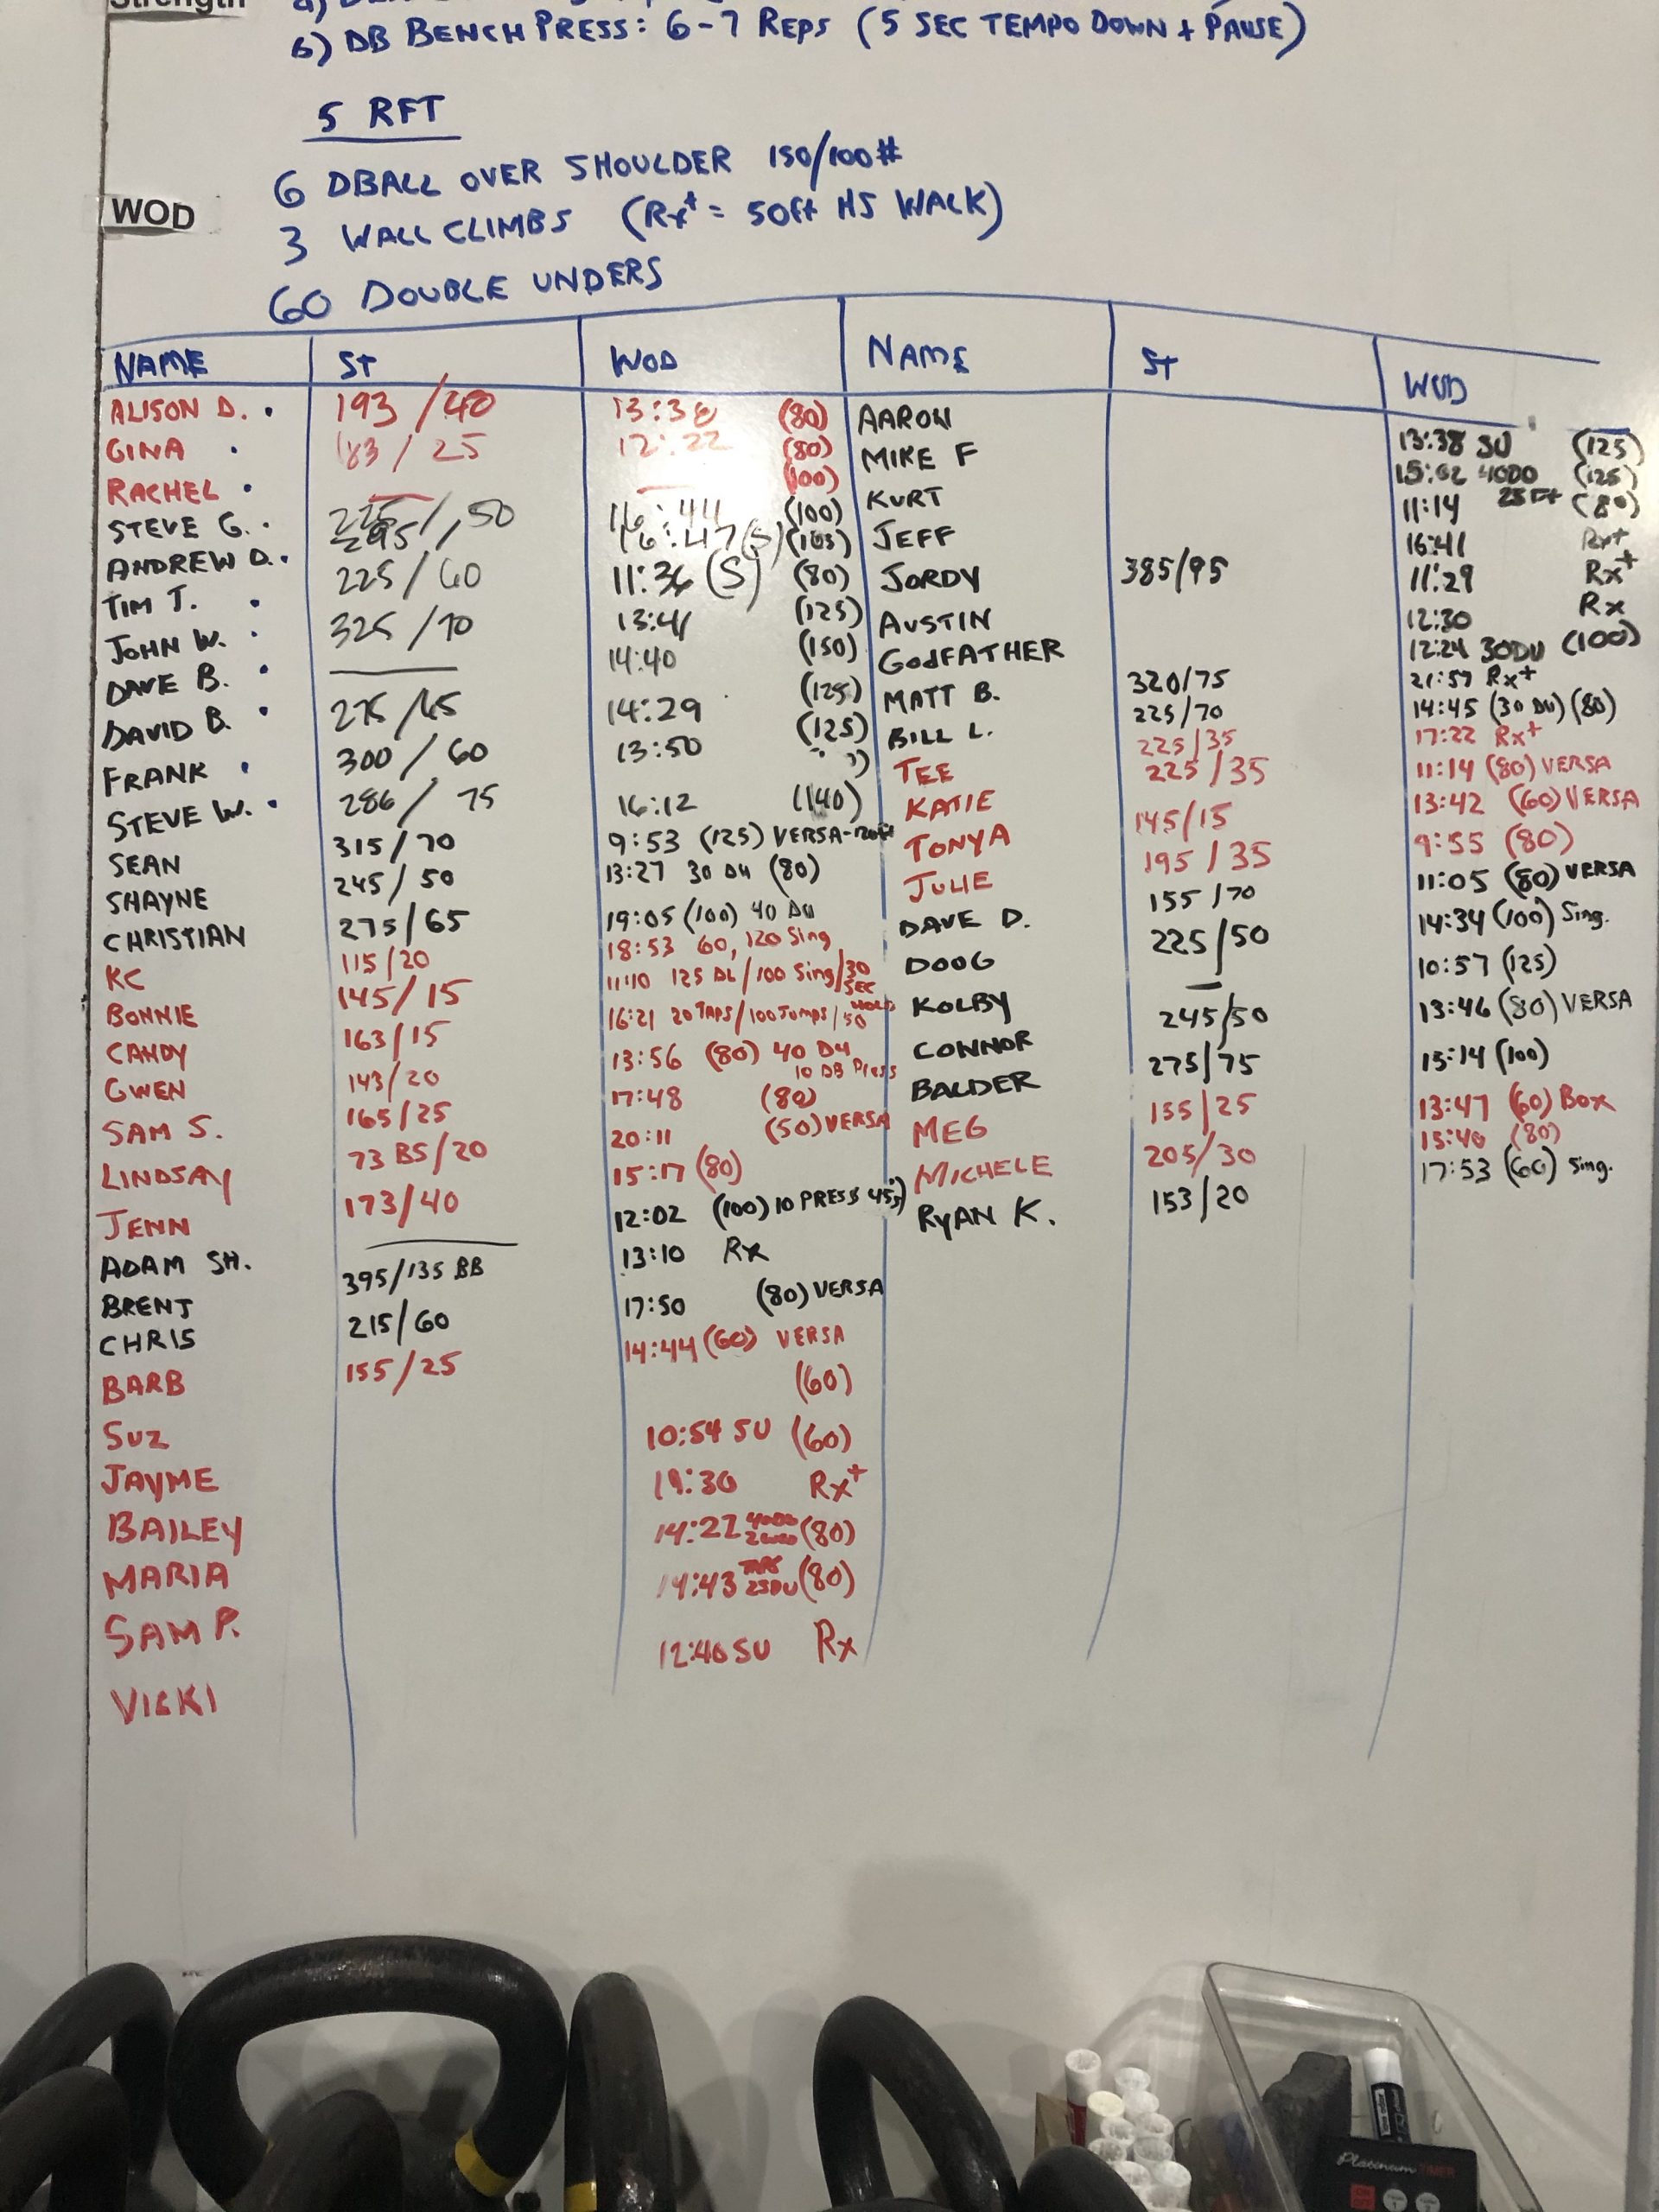 Strength
6) DB BENCH PRESS: 6-7 REPS (5 SEC TEMPO DOWN + PAUSE)
5 RFT
WOD
6 DBALL OVER SHOULDER 150/100#
3 WALL CLIMBS (Rx+ = 50ft HS WALK)
60 DOUBLE UNDERS
NAME ST WOD NAME ST WOD
ALISON D. 193/40 13:38 (80)
GINA 183/25 12:22 (80)
RACHEL (100)
STEVE G. 50 16:44 (100)
ANDREW D. 16:47 (S)
TIM T. 225/60 11:36 (S) (80)
JOHN W. 325/70 13:41 (125)
DAVE B. 14:40 (150)
DAVID B. 275/45 14:29 (125)
FRANK 300/60 13:50 (125)
STEVE W. 286/75 16:12 (140)
SEAN 315/70 9:53 (125) VERSA
SHAYNE 245/50 13:27 30 DU (80)
CHRISTIAN 275/65 19:05 (100) 40 DU
KC 115/20 18:53 60, 120 Sing
BONNIE 145/15 11:10 125 DL/100 Sing/30 SEC HOLD
CANDY 163/15 16:21 20 TAPS/100 Jumps/50
GWEN 143/20 13:56 (80) 40 DU 10 DB Press
SAM S. 165/25 17:48 (80)
LINDSAY 73 BS/20 20:11 (50) VERSA
JENN 173/40 15:17 (80)
ADAM SH. 12:02 (100) 10 PRESS 45s
BRENT 395/135 BB 13:10 Rx
CHRIS 215/60 17:50 (80) VERSA
BARB 155/25 14:44 (60) VERSA
SUZ (60)
JAYME 10:54 SU (60)
BAILEY 19:30 Rx+
MARIA 14:27 (80)
SAM P. 14:43 TAPS 25DU (80)
VICKI 12:40 SU Rx
AARON 13:38 SU (125)
MIKE F 15:02 40DU (125)
KURT 11:14 25 Ft (80)
JEFF 16:41 Rx+
JORDY 385/95 11:29 Rx+
AUSTIN 12:30 Rx
GODFATHER 12:24 30DU (100)
MATT B. 320/75 21:57 Rx+
BILL L. 225/70 14:45 (30 DU) (80)
TEE 225/35 17:22 Rx+
KATIE 225/35 11:14 (80) VERSA
TONYA 145/15 13:42 (60) VERSA
JULIE 195/35 9:55 (80)
DAVE D. 155/70 11:05 (80) VERSA
DOOG 225/50 14:34 (100) Sing.
KOLBY 10:57 (125)
CONNOR 245/50 13:46 (80) VERSA
BALDER 275/75 15:14 (100)
MEG 155/25 13:47 (60) Box
MICHELE 205/30 15:40 (80)
RYAN K. 153/20 17:53 (60) Sing.
Platinum TIMER